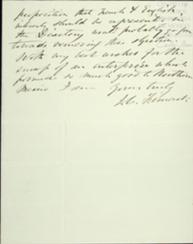 proposition that French & English
interests should be represented in
the Directory would probably go far
towards removing this objection.
With my best wishes for the
success of an enterprise which
promises so much good to Northern
Mexico I am Yours truly